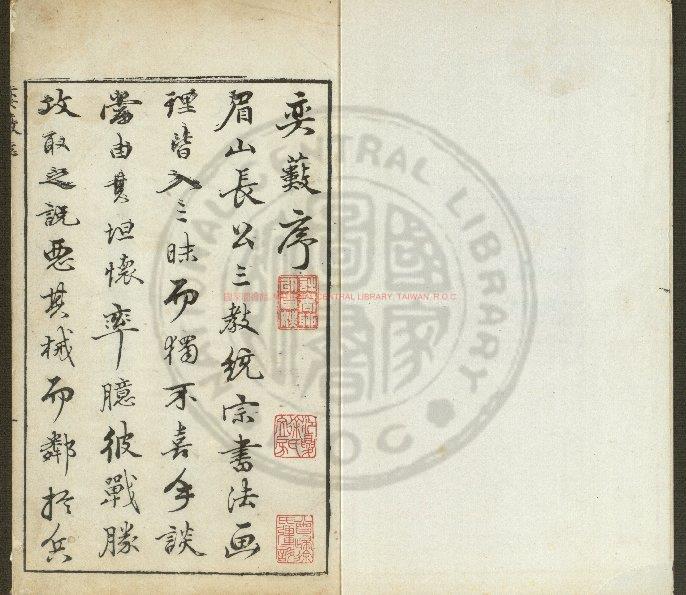 奕藪序
眉山長公三教統宗書法画
理皆入三昧而獨不喜手談
當由其坦懷率臆彼戰勝
攻取之説惡其械而鄰於兵
國家圖書館 NATIONAL CENTRAL LIBRARY, TAIWAN, R.O.C